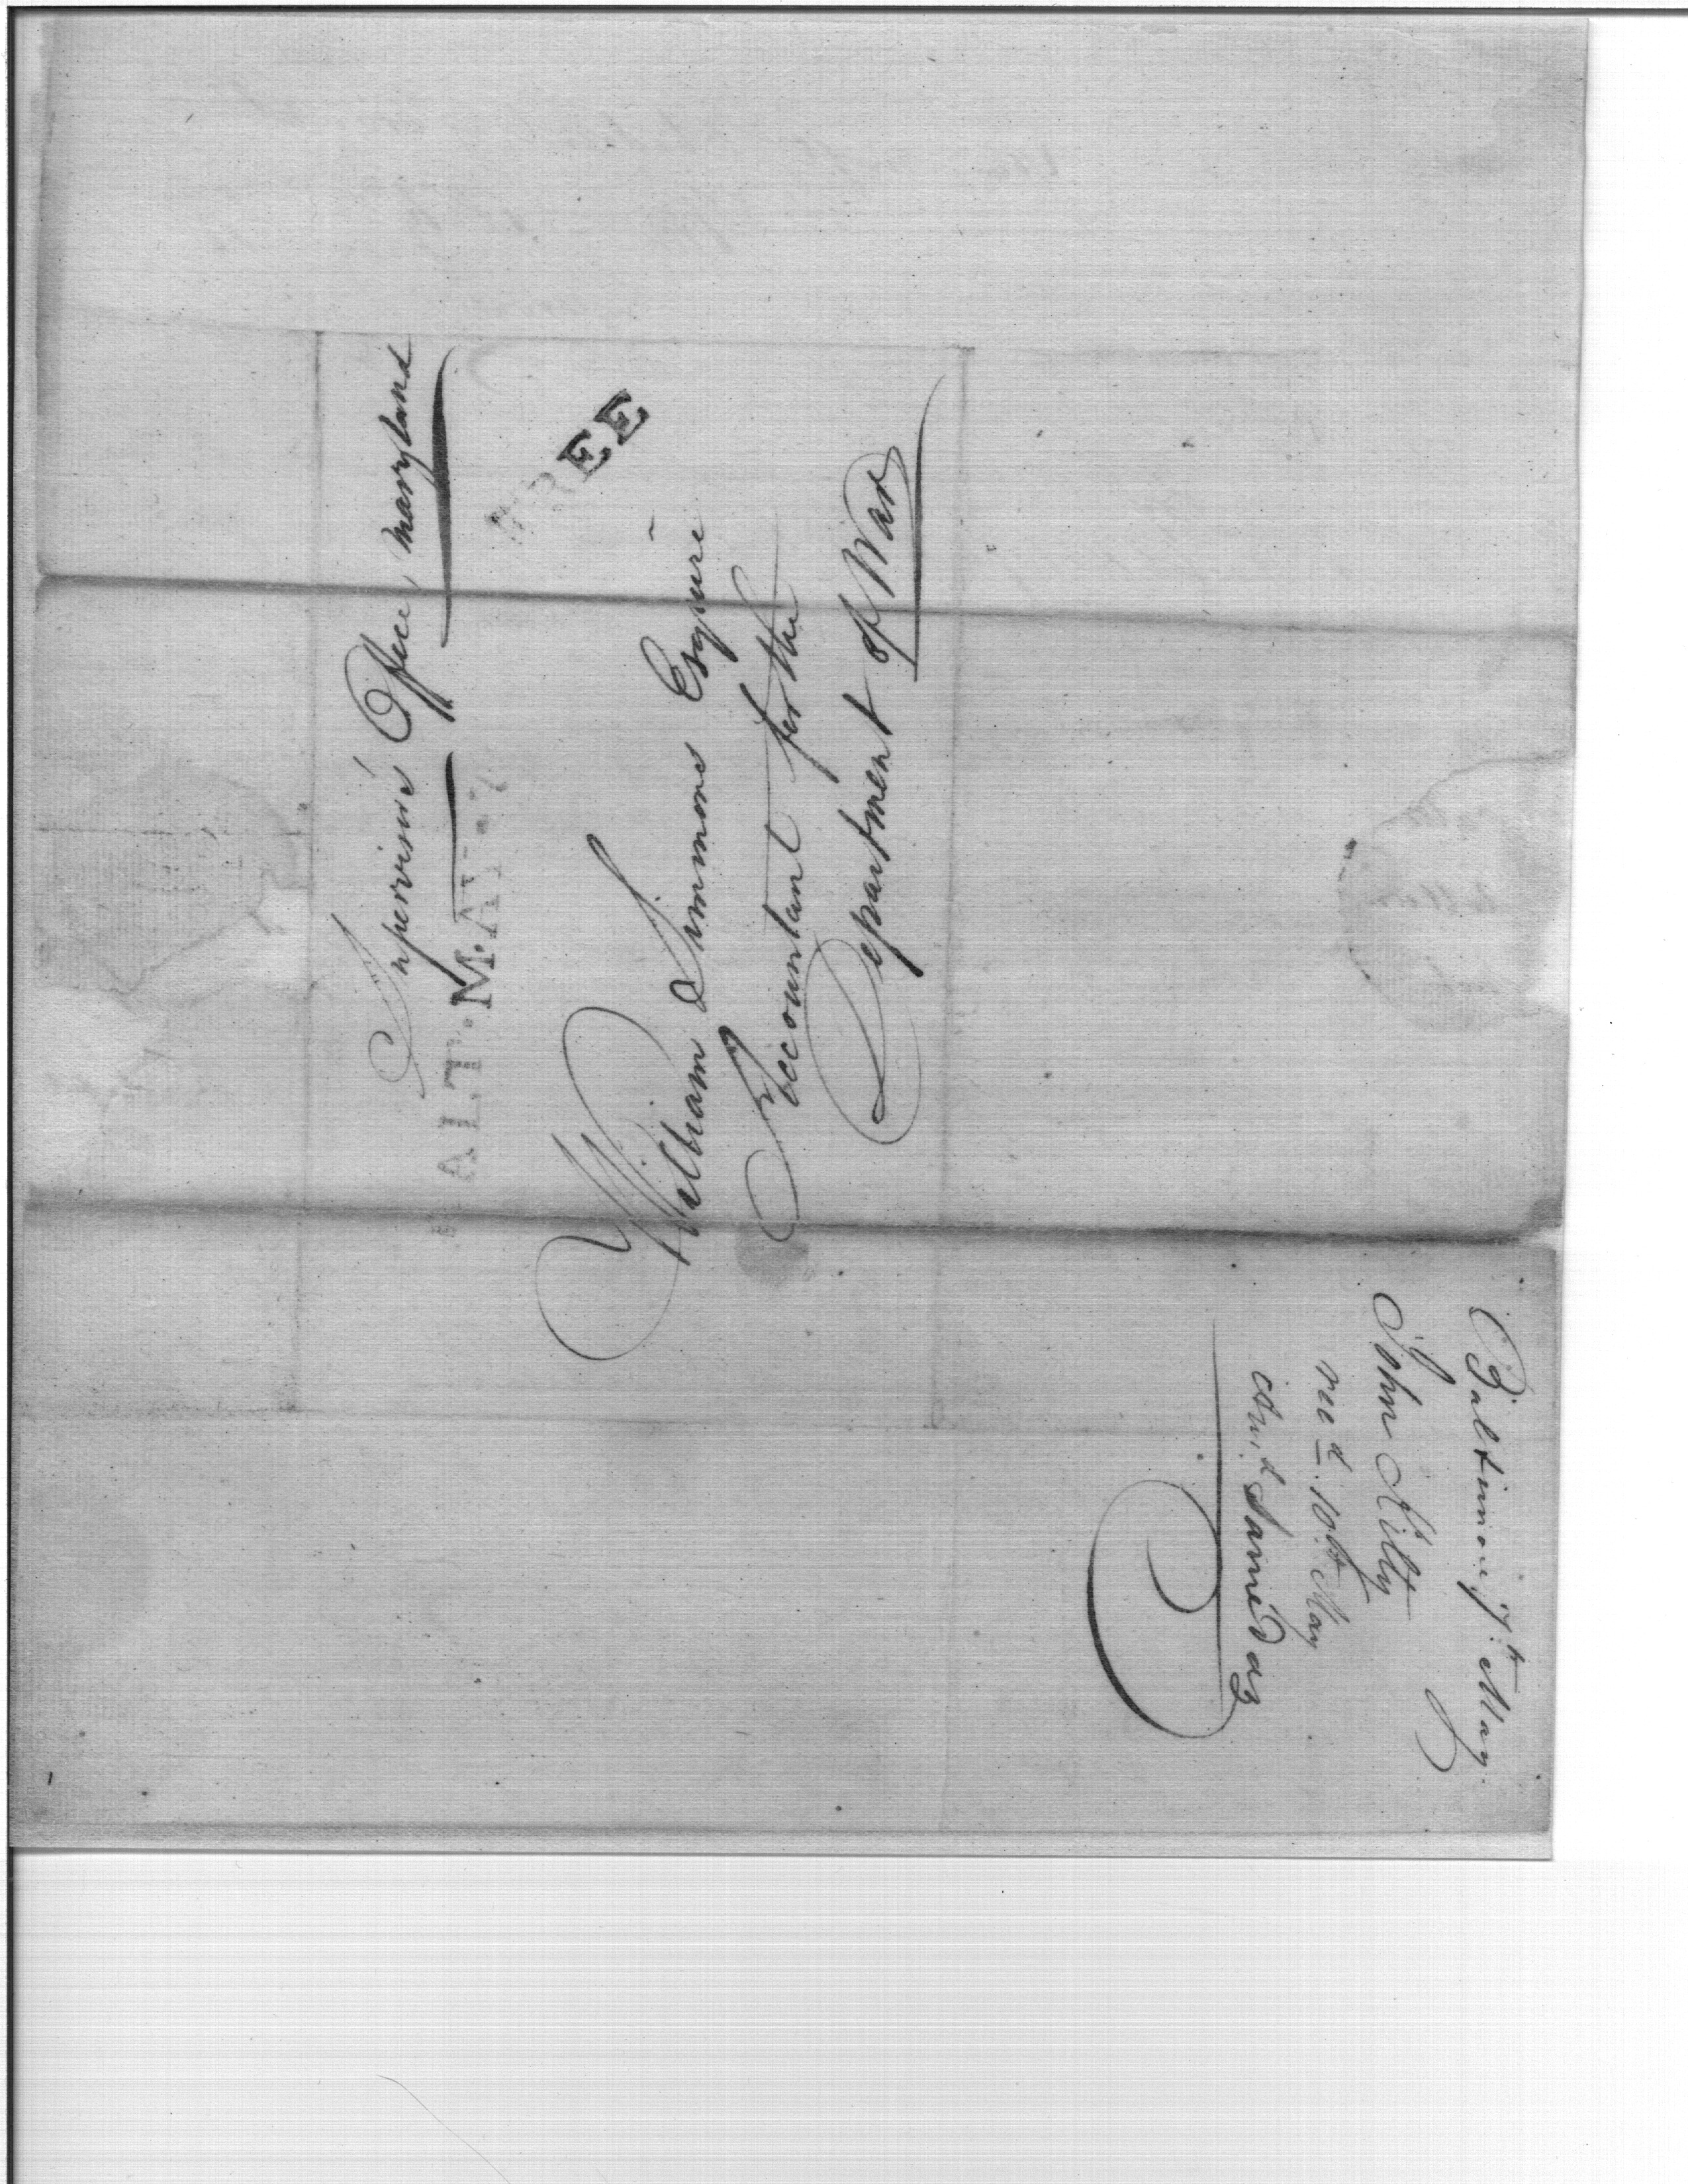 Supervisor's Office, Maryland
BALT. MAY
FREE
William Simmons Esquire
Accountant for the
Department of War
Baltimore 7th May.
John Kilty
rec.d 10th May
Same Day